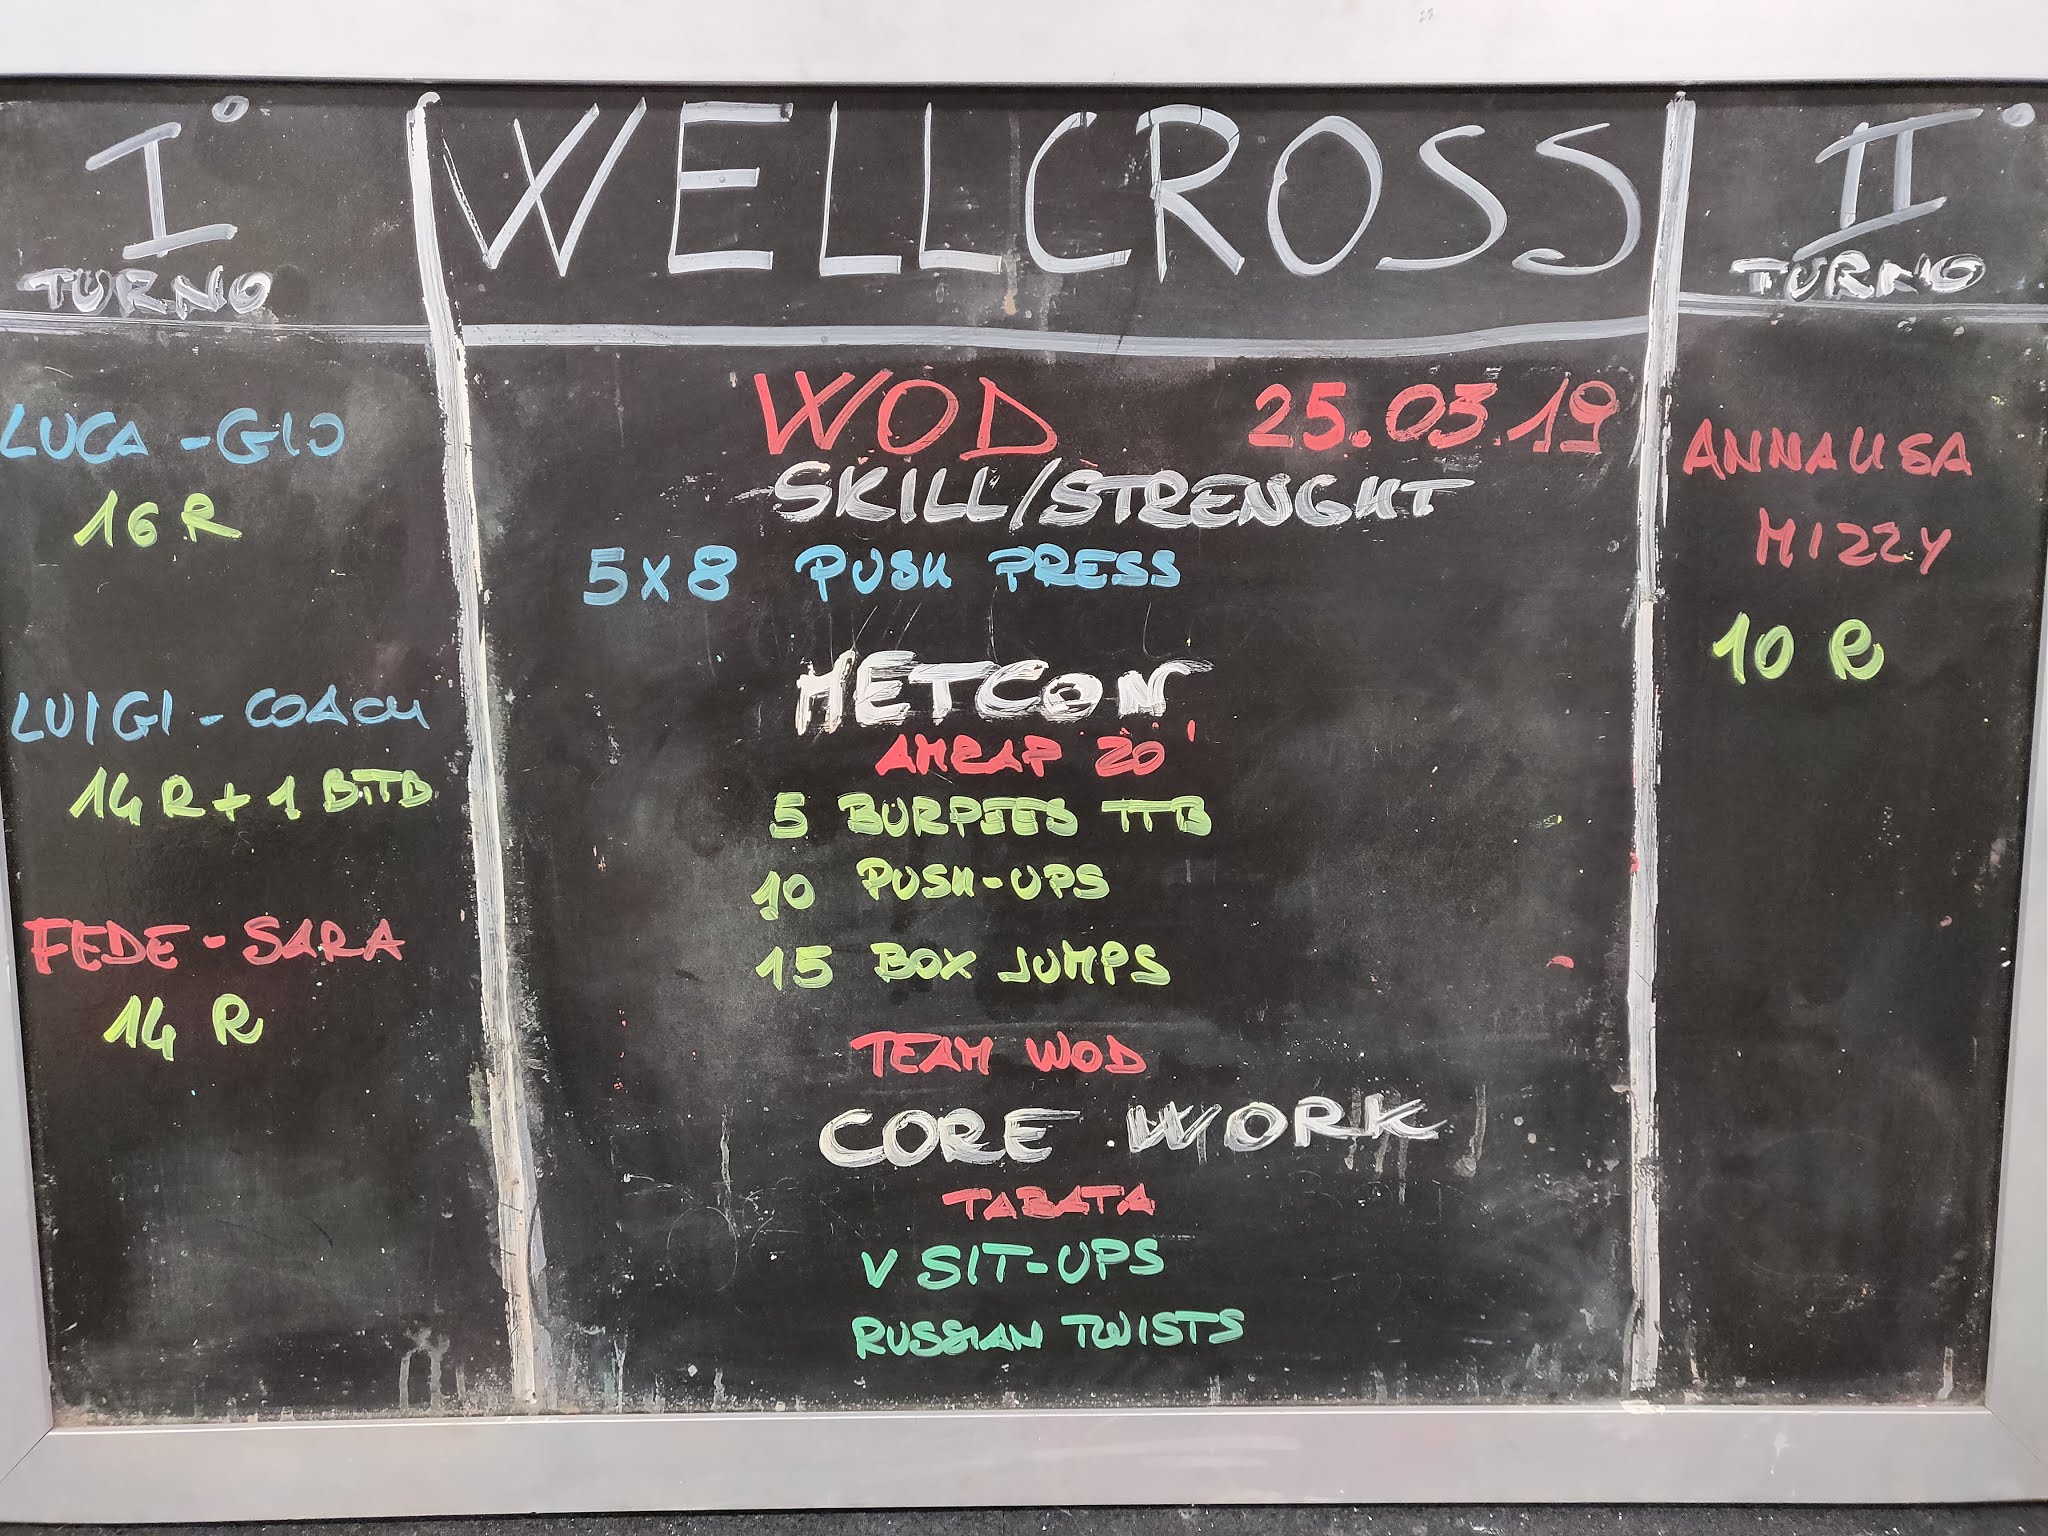 I°
TURNO
LUCA - GIO
16 R
LUIGI - COACH
14 R + 1 BTTB
FEDE - SARA
14 R
WELLCROSS
WOD 25.03.19
SKILL/STRENGHT
5X8 PUSH PRESS
METCON
AMRAP 20'
5 BURPEES TTB
10 PUSH-UPS
15 BOX JUMPS
TEAM WOD
CORE WORK
TABATA
V SIT-UPS
RUSSIAN TWISTS
II°
TURNO
ANNALISA
MIZZY
10 R